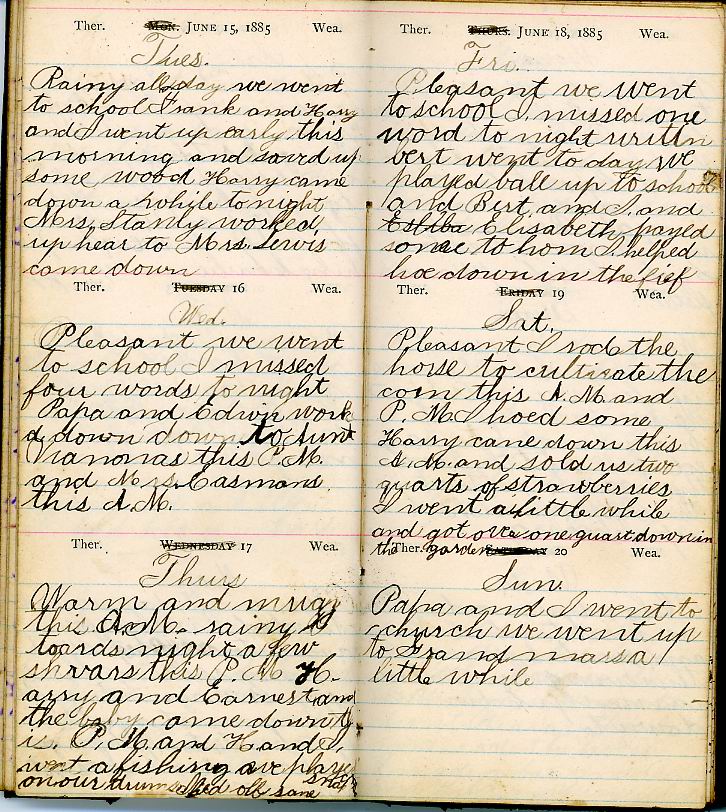 Ther. MON. JUNE 15, 1885 Wea.
Tues.
Rainy all day we went
to school Frank and Harry
and I went up early this
morning and sawed up
some wood Harry came
down a while to night
Mrs. Standy worked
up hear to Mrs. Lewis
came down
Ther. TUESDAY 16 Wea.
Wed.
Pleasant we went
to school I missed
four words to night
Papa and Edwin work
d down down to Aunt
this P.M.
and Mrs. Easmans
this A.M.
Ther. WEDNESDAY 17 Wea.
Thurs
Warm and
this A.M. rainy
toards night a few
this P.M H-
arry and Earnest and
the baby came down
is. P.M and H and I,
went a fishing
on our
Ther. THURS. JUNE 18, 1885 Wea.
Fri.
Pleasant we went
to school I missed one
word to night written
bert went to day We
played ball up to school
and Bert, and I, and
Elisabeth, payed
some to hom I helped
hoe down in the
Ther. FRIDAY 19 Wea.
Sat.
Pleasant I rode the
horse to cultivate the
corn this A.M. and
P.M I hoed some
Harry cane down this
A.M. and sold us two
quarts of strawberries
I went a little while
and got over one quart down in
the garden
Ther. SATURDAY 20 Wea.
Sun.
Papa and I went to
church we went up
to Grand marsa
little while